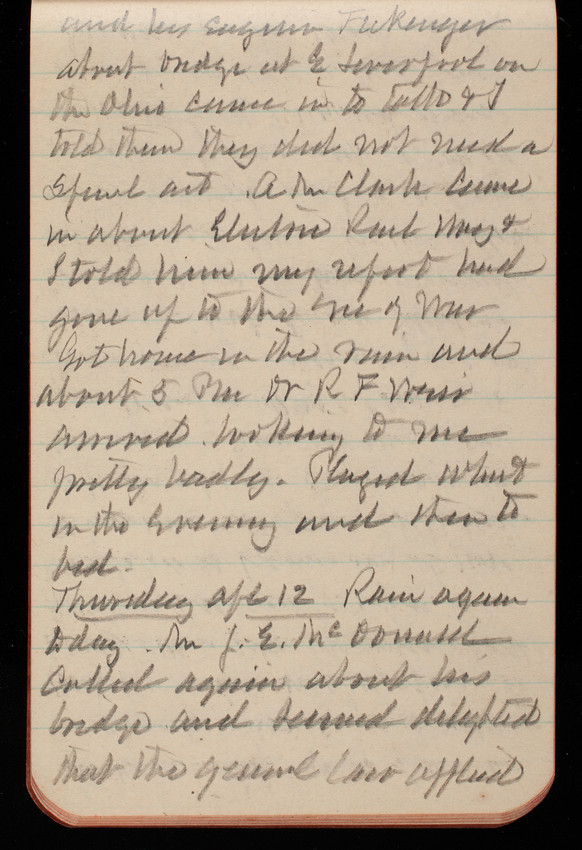 and his engineer
about bridge at E Liverpool on
the Ohio came in to talk & I
told them they did not need a
special act. A Mr Clark came
in about Electric Rail Way &
I told him my report had
gone up to the Sec of War
Got home in the rain and
about 5 PM Dr R F Weir
arrived looking to me
pretty badly. Played whist
in the evening and then to
bed.
Thursday apl 12 Rain again
today. Mr J. E. McDonald
Called again about his
bridge and seemed delighted
that the general law applied